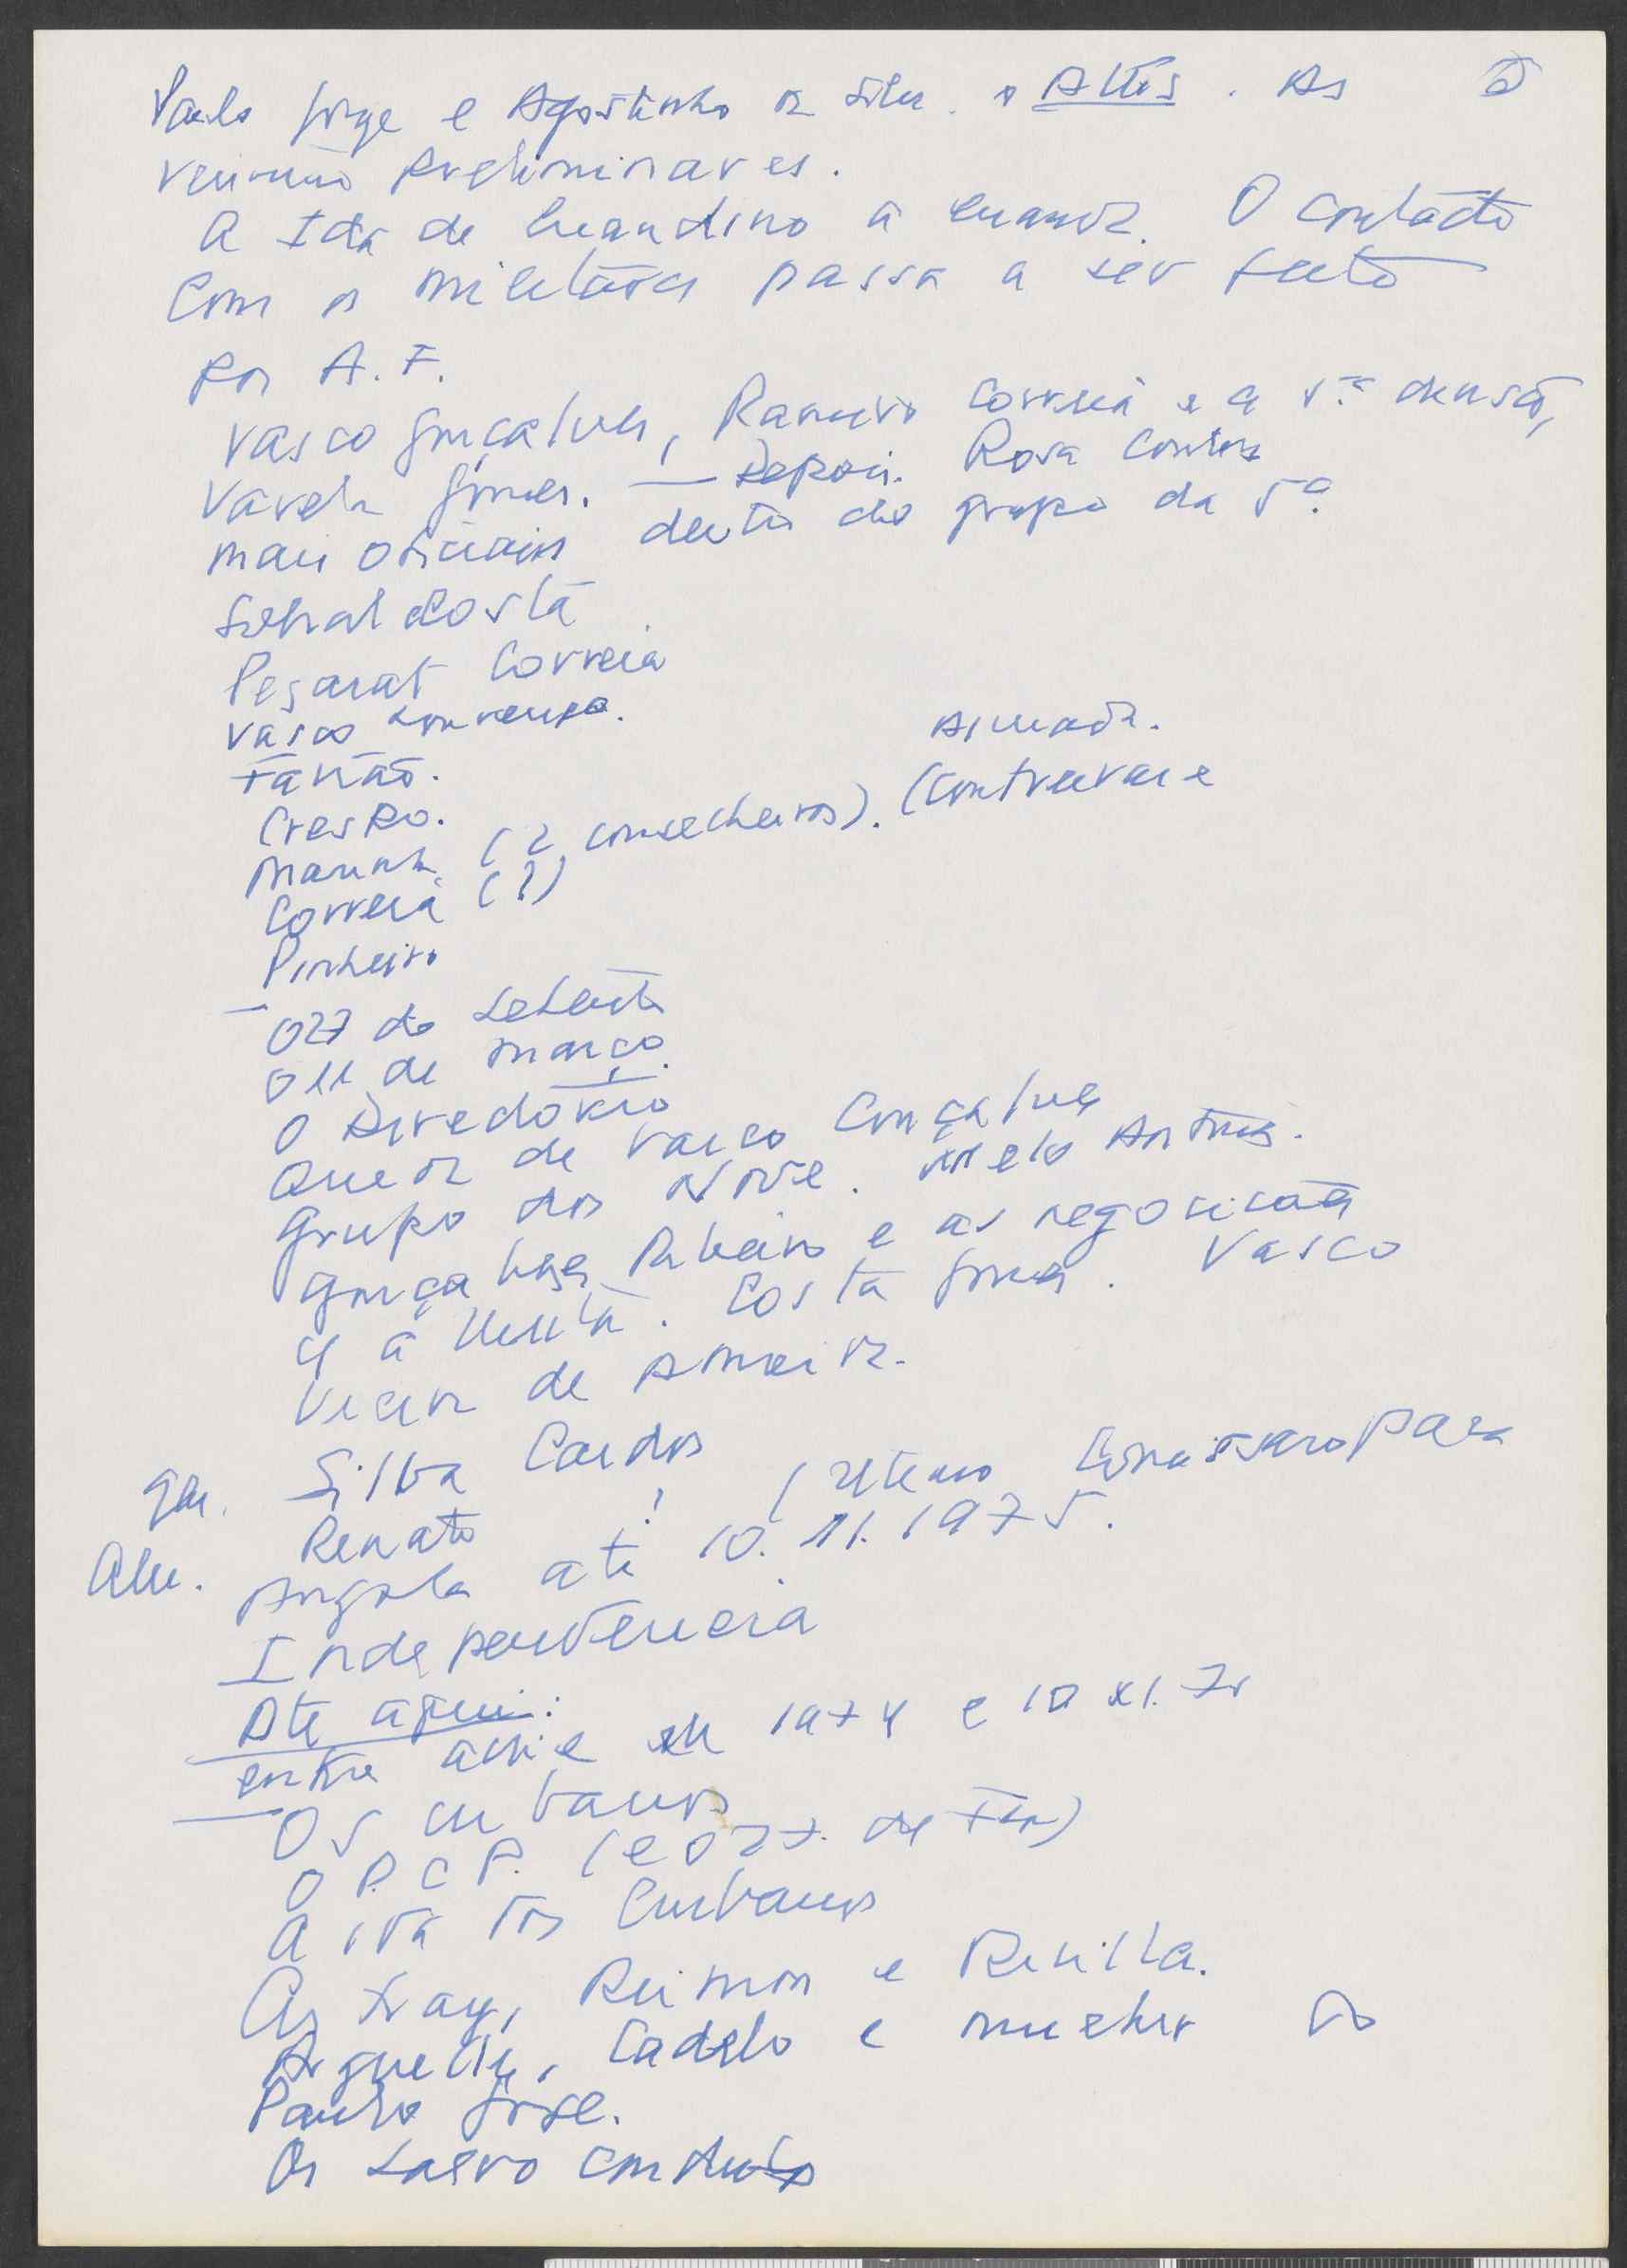 Paulo Jorge e Agostinho da Silva. o Altis. As 5
reunião preliminares.
A Ida de Luandino a Luanda. O contacto
Com os militares passa a ser feito
por A. F.
Vasco Gonçalves, Ramiro Correia e a 5.ª divisão,
Varela Gomes. — Depois. Rosa Coutinho
mais oficiais dentro do grupo da 5ª.
Sobral Costa
Pesarat Correia
Vasco Lourenço.
Fabião.
Crespo. Almada.
Marinha (2 conselheiros). (Contreiras e
Correia (?)
Pinheiro
— O 27 de Setembro
O 11 de março.
O Diredório
Queda de Vasco Gonçalves
Grupo dos Nove. Melo Antunes.
Gonçalves Ribeiro e as negociações
Costa Gomes. Vasco
Vieira de Almeida.
Gen. Silva Cardoso
Alm. Renato ! (último Comissário para
Angola até 10.11.1975.
Independência
Até aqui:
entre abril de 1974 e 10 XI. 75
— Os cubanos
O P.C.P. (e o 27. de
A ida dos Cubanos
As tray, Reimon e Revilla.
Arguelles, Cadelo e mulher do
Paulo Jorge.
Os